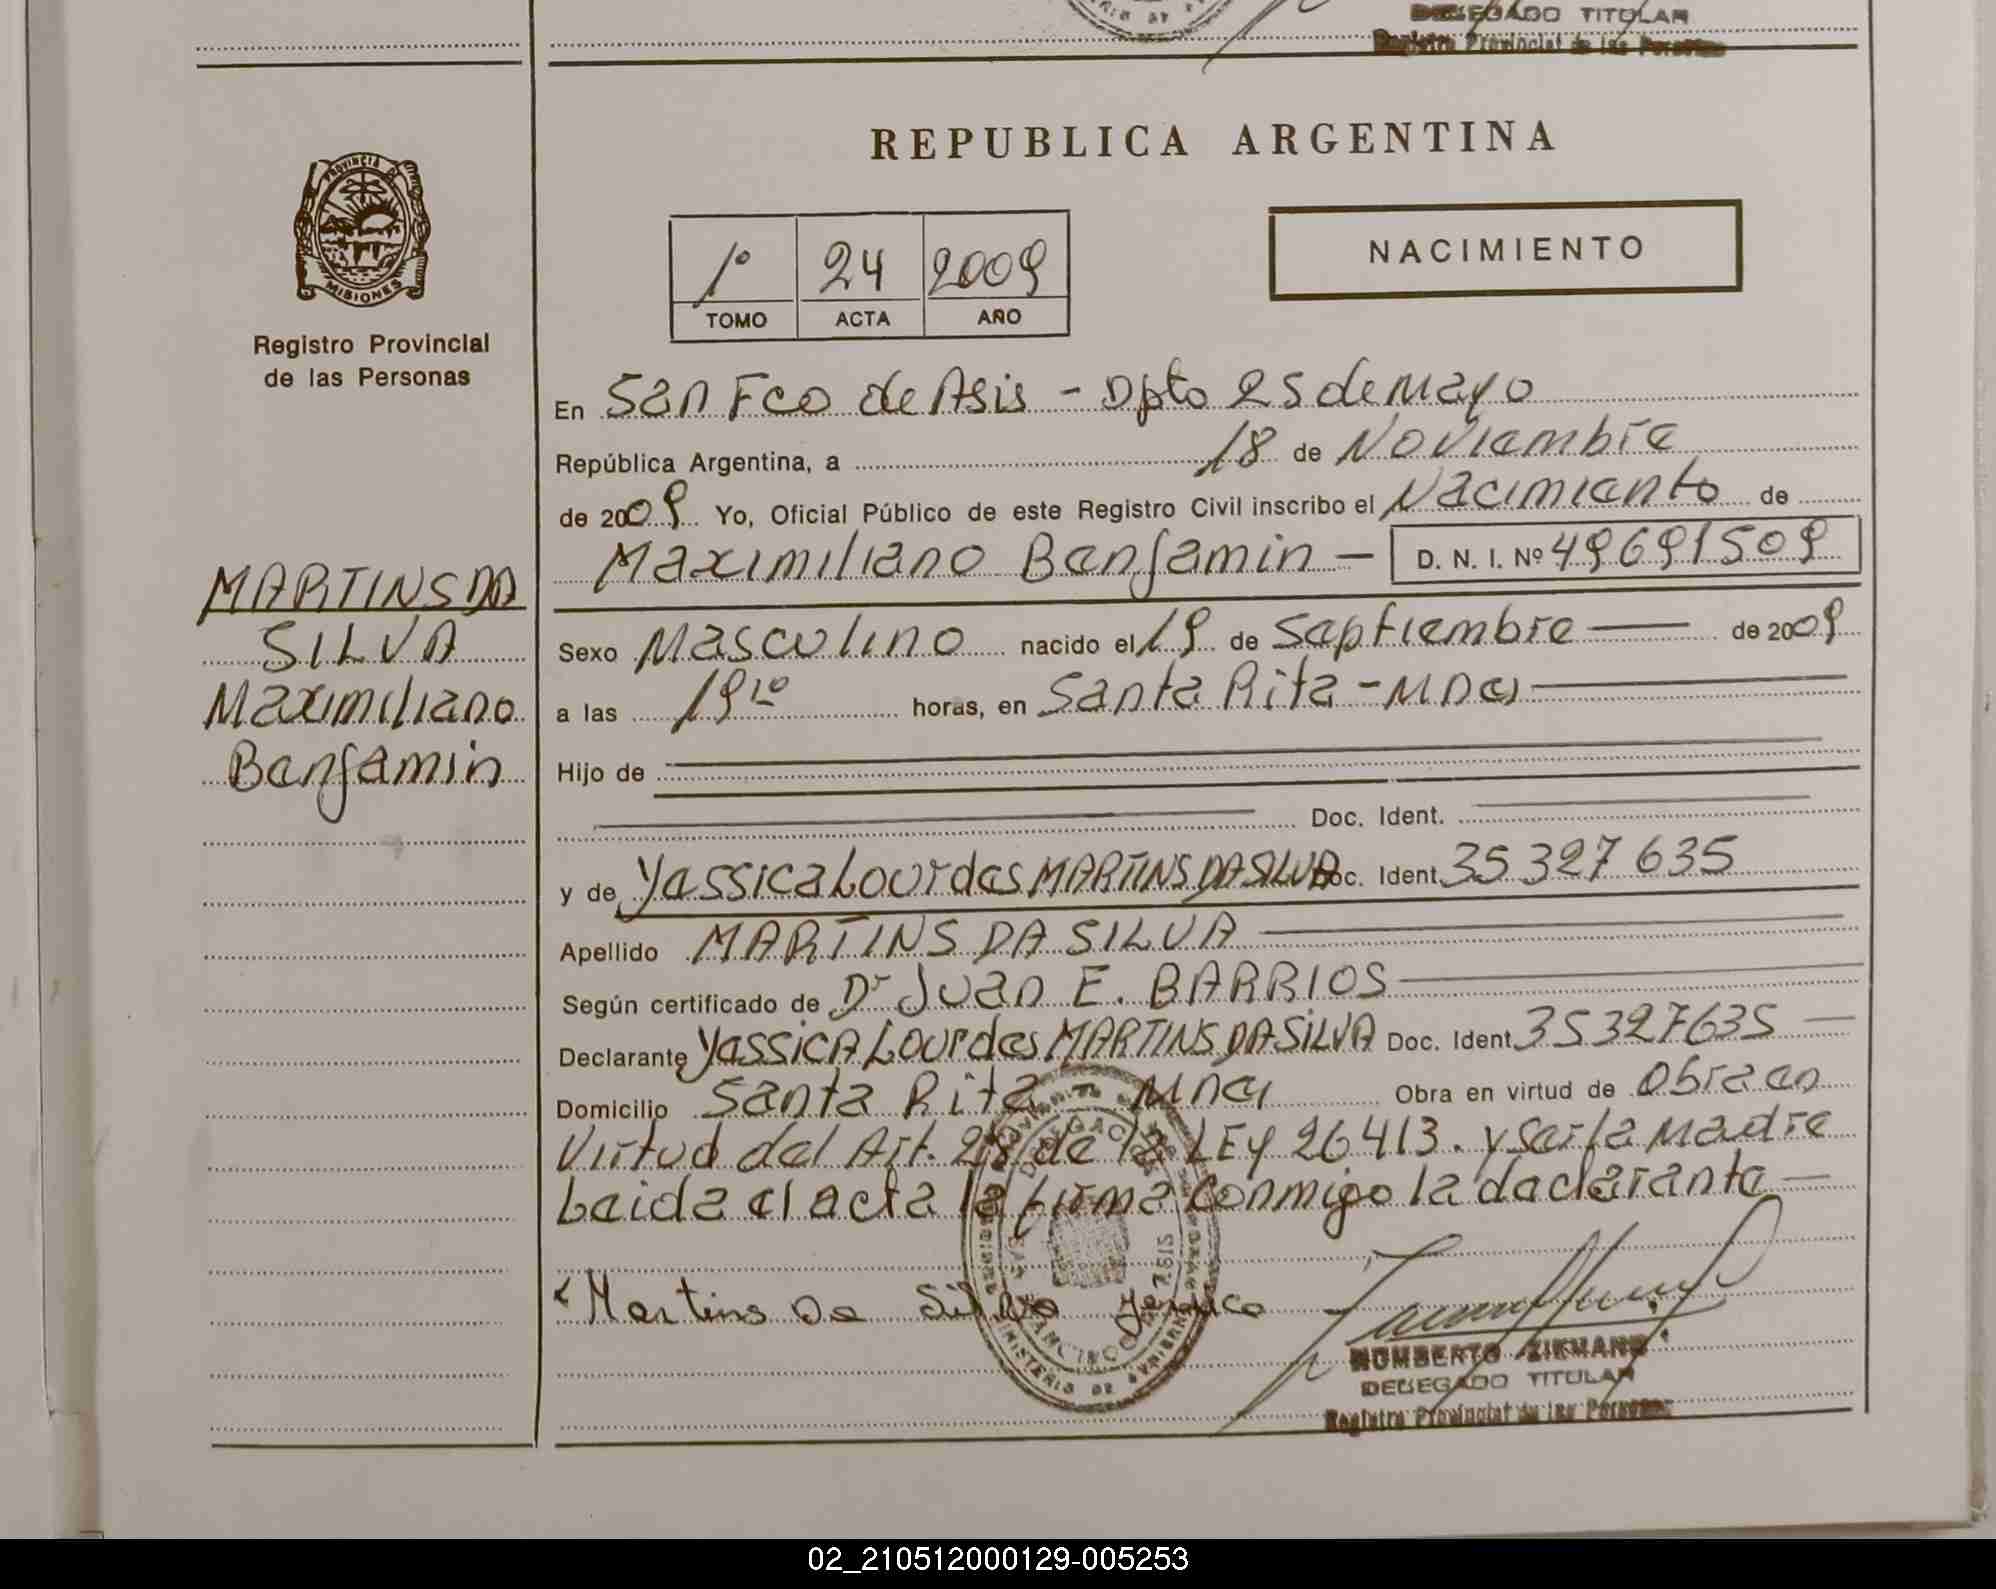 DELEGADO TITULAR
Registro Provincial de las Personas
PROVINCIA DE
MISIONES
Registro Provincial
de las Personas
MARTINS DA
SILVA
Maximiliano
Benjamin
REPUBLICA ARGENTINA
1º 24 2009
TOMO ACTA AÑO
NACIMIENTO
En San Fco de Asis - Dpto 25 de Mayo
República Argentina, a 18 de Noviembre
de 2009 Yo, Oficial Público de este Registro Civil inscribo el Nacimiento de
Maximiliano Benjamin — D. N. I. Nº 49691509
Sexo Masculino nacido el 19 de Septiembre — de 2009
a las 19 10 horas, en Santa Rita - Mnes
Hijo de
Doc. Ident.
y de Yessica Lourdes MARTINS DA SILVA Doc. Ident. 35327635
Apellido MARTINS DA SILVA
Según certificado de Dr Juan E. BARRIOS
Declarante Yessica Lourdes MARTINS DA SILVA Doc. Ident 35327635
Domicilio Santa Rita Mnes Obra en virtud de Obra en
Virtud del Art. 28 de la LEY 26413. y ser la Madre
Leida el acta la firma conmigo la declarante —
Martins Da Silva Jessica
HUMBERTO
DELEGADO TITULAR
Registro Provincial de las Personas
02_210512000129-005253